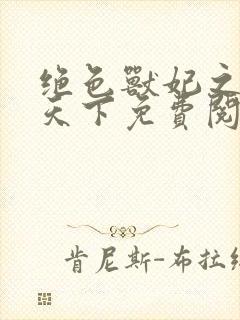 绝色獸妃之
天下免費閱
肯尼斯-布拉